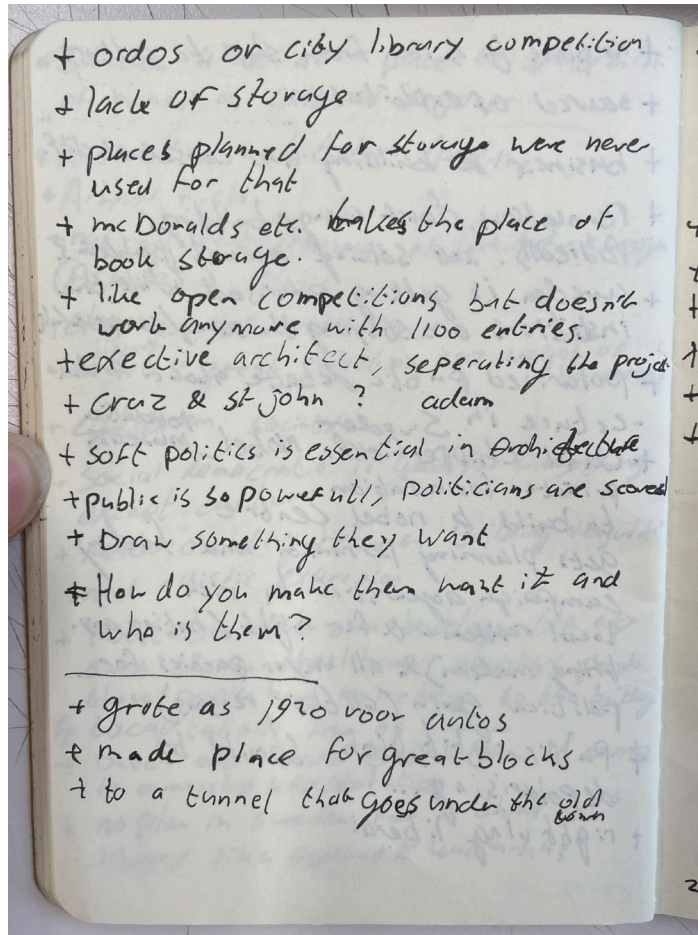 + ordos or city library competition
+ lack of storage
+ places planned for storage were never
used for that
+ mcDonalds etc. makes the place of
book storage.
+ like open competitions but doesn't
work anymore with 1100 entries.
+ exective architect, seperating the project
+ cruz & st john ? adam
+ soft politics is essential in Architecture
+ public is so powerfull, politicians are scared
+ Draw something they want
+ How do you make them want it and
who is them?
+ grote as 1920 voor autos
+ made place for great blocks
+ to a tunnel that goes under the old
town